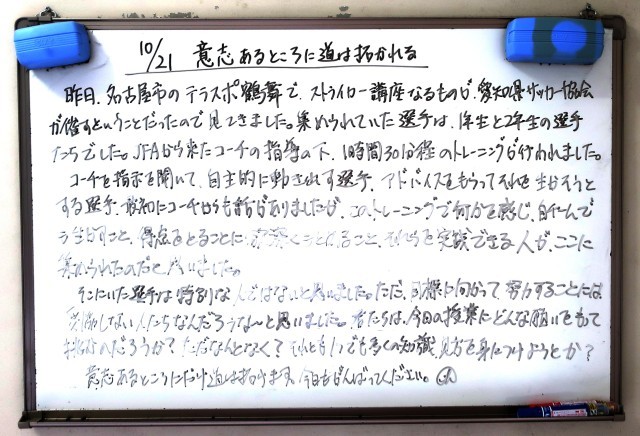 10/21 意志あるところに道は拓かれる
昨日、名古屋市のテラスポ鶴舞で、ストライカー講座なるものが、愛知県サッカー協会
が催すということだったので見てきました。集められていた選手は、1年生と2年生の選手
たちでした。JFAから来たコーチの指導の下、1時間30分程のトレーニングが行われました。
コーチの指示を聞いて、自主的に動きだす選手、アドバイスをもらってそれを生かそうと
する選手、最初にコーチからも話がありましたが、このトレーニングで何かを感じ、自分で
生かすこと、得点をとることに こと、それらを実践できる人が、ここに
集められたのだと思いました。
そこにいた選手は特別な人ではないと思いました。ただ、目標に向かって、努力することには
妥協しない人たちなんだろうな〜と思いました。君たちは、今日の授業にどんな願いをもって
のだろうか？ただなんとなく？それとも1つでも多くの知識、見方を身につけようとか？
意志あるところにだけ道は拓けます。今日もがんばってください。